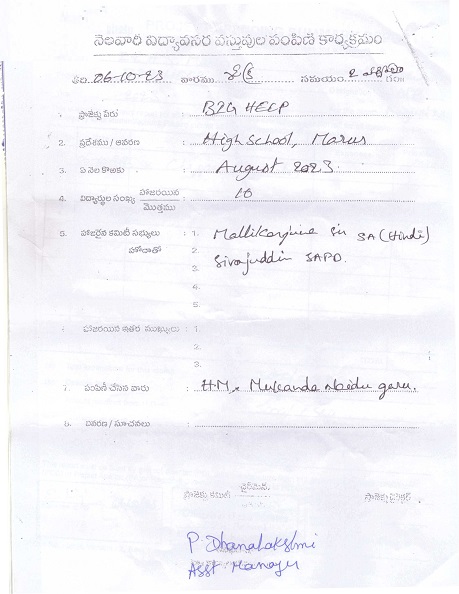 నెలవారి విద్యావసర వస్తువుల పంపిణి కార్యక్రమం
తేది. 06-10-23 వారము శుక్ర సమయం 2
1. ప్రాజెక్టు పేరు : B2G HELP
2. ప్రదేశము / ఆవరణ : High School, Marur
3. ఏ నెల కొఱకు : August 2023.
4. విద్యార్థుల సంఖ్య హాజరయిన / మొత్తము : 10
5. హాజరైన కమిటీ సభ్యులు : 1. Mallikarjuna Sir SA (Hindi)
హోదాతో 2. Sirajuddin SAPD.
3.
4.
5.
6. హాజరయిన ఇతర ముఖ్యులు : 1.
2.
3.
7. పంపిణీ చేసిన వారు : H.M, Mukanda Naidu garu.
8. వివరణ / సూచనలు :
ప్రాజెక్టు కమిటీ చైర్మెన్ ప్రాజెక్టు డైరెక్టర్
P Dhanalakshmi
Asst Manager